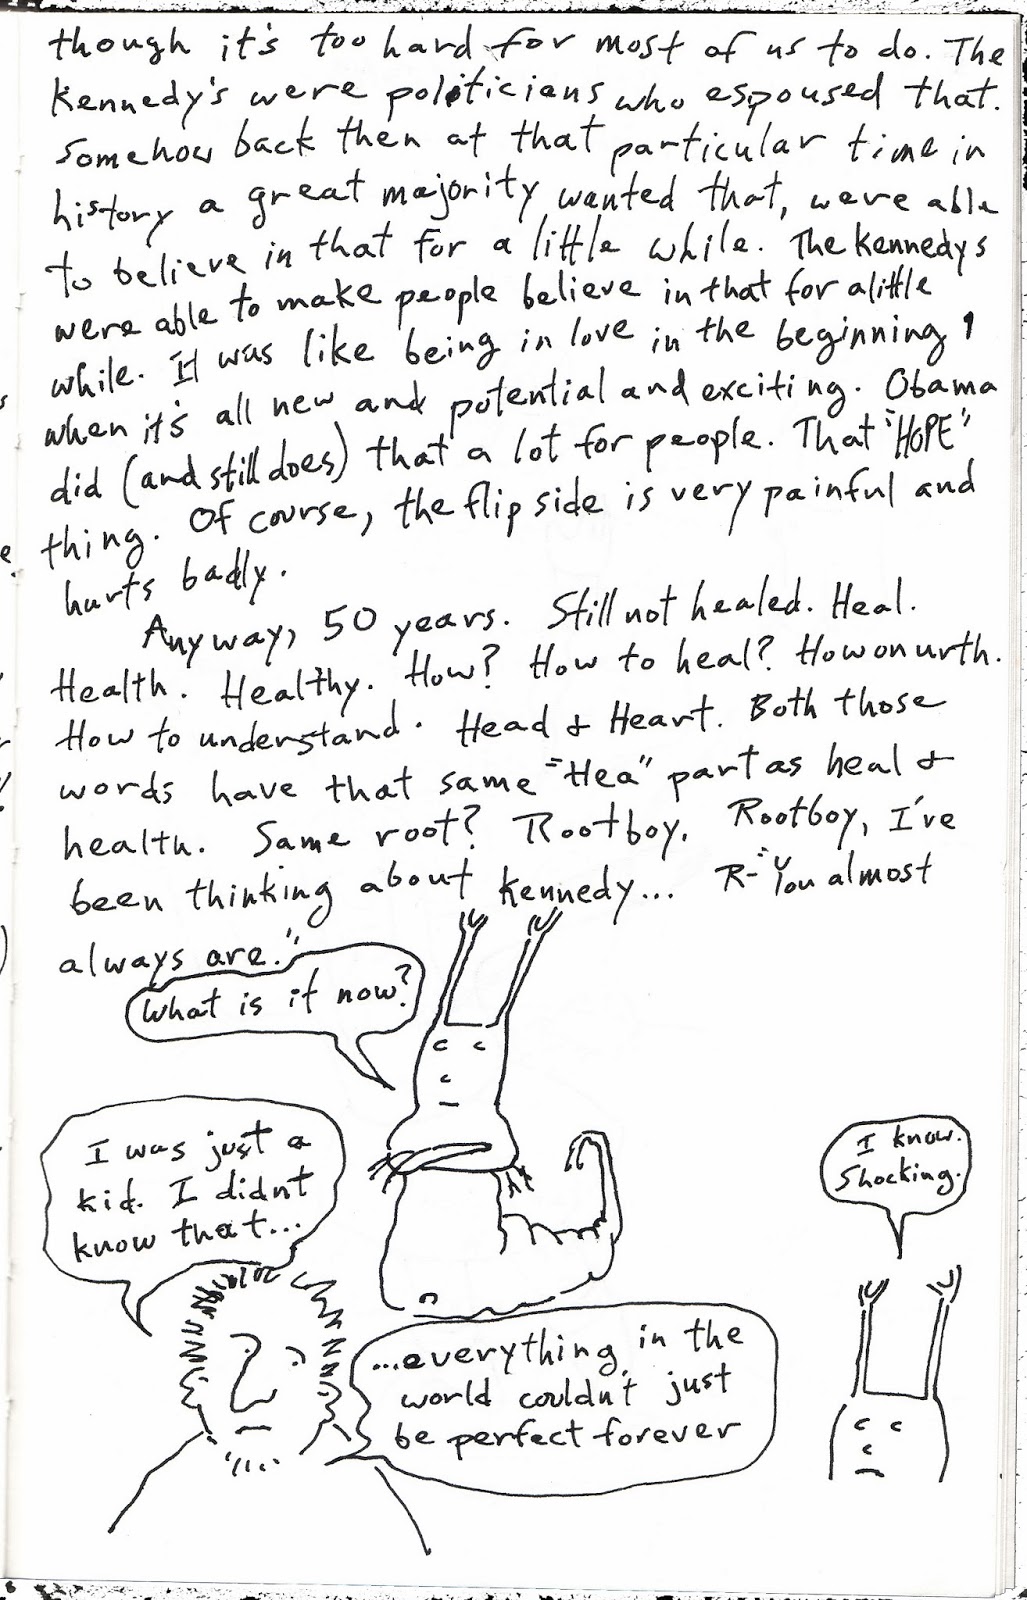 though it's too hard for most of us to do. The
Kennedy's were politicians who espoused that.
Somehow back then at that particular time in
history a great majority wanted that, were able
to believe in that for a little while. The Kennedys
were able to make people believe in that for a little
while. It was like being in love in the beginning,
when it's all new and potential and exciting. Obama
did (and still does) that a lot for people. That "HOPE"
thing. Of course, the flip side is very painful and
hurts badly.
Anyway, 50 years. Still not healed. Heal.
Health. Healthy. How? How to heal? How on urth.
How to understand. Head & Heart. Both those
words have that same "Hea" part as heal &
health. Same root? Rootboy. Rootboy, I've
been thinking about Kennedy... R-"You almost
always are."
What is it now?
I was just a
kid. I didnt
know that...
...everything in the
world couldn't just
be perfect forever
I know.
Shocking.